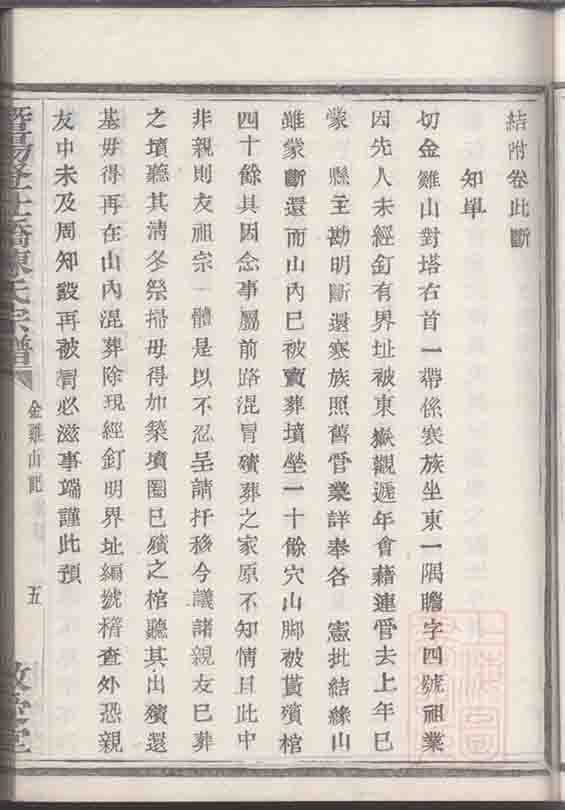 結附卷此斷
知單
切金雞山對塔右首一帶係寒族坐東一隅瞻字四號祖業
因先人未經釘有界址被東嶽觀遞年會藉連管去上年已
蒙 縣主勘明斷還寒族照舊管業詳奉各 憲批結緣山
雖蒙斷還而山內已被賣葬墳塋一十餘穴山脚被蓋殯棺
四十餘具因念事屬前路混冒殯葬之家原不知情且此中
非親則友祖宗一體是以不忍呈請扦移今議諸親友已葬
之墳聽其清冬祭掃毋得加築墳圈已殯之棺聽其出殯還
基毋得再在山內混葬除現經釘明界址編號稽查外恐親
友中未及周知設再被冐必滋事端謹此預
暨陽 橋陳氏宗譜
金雞山記
五
堂